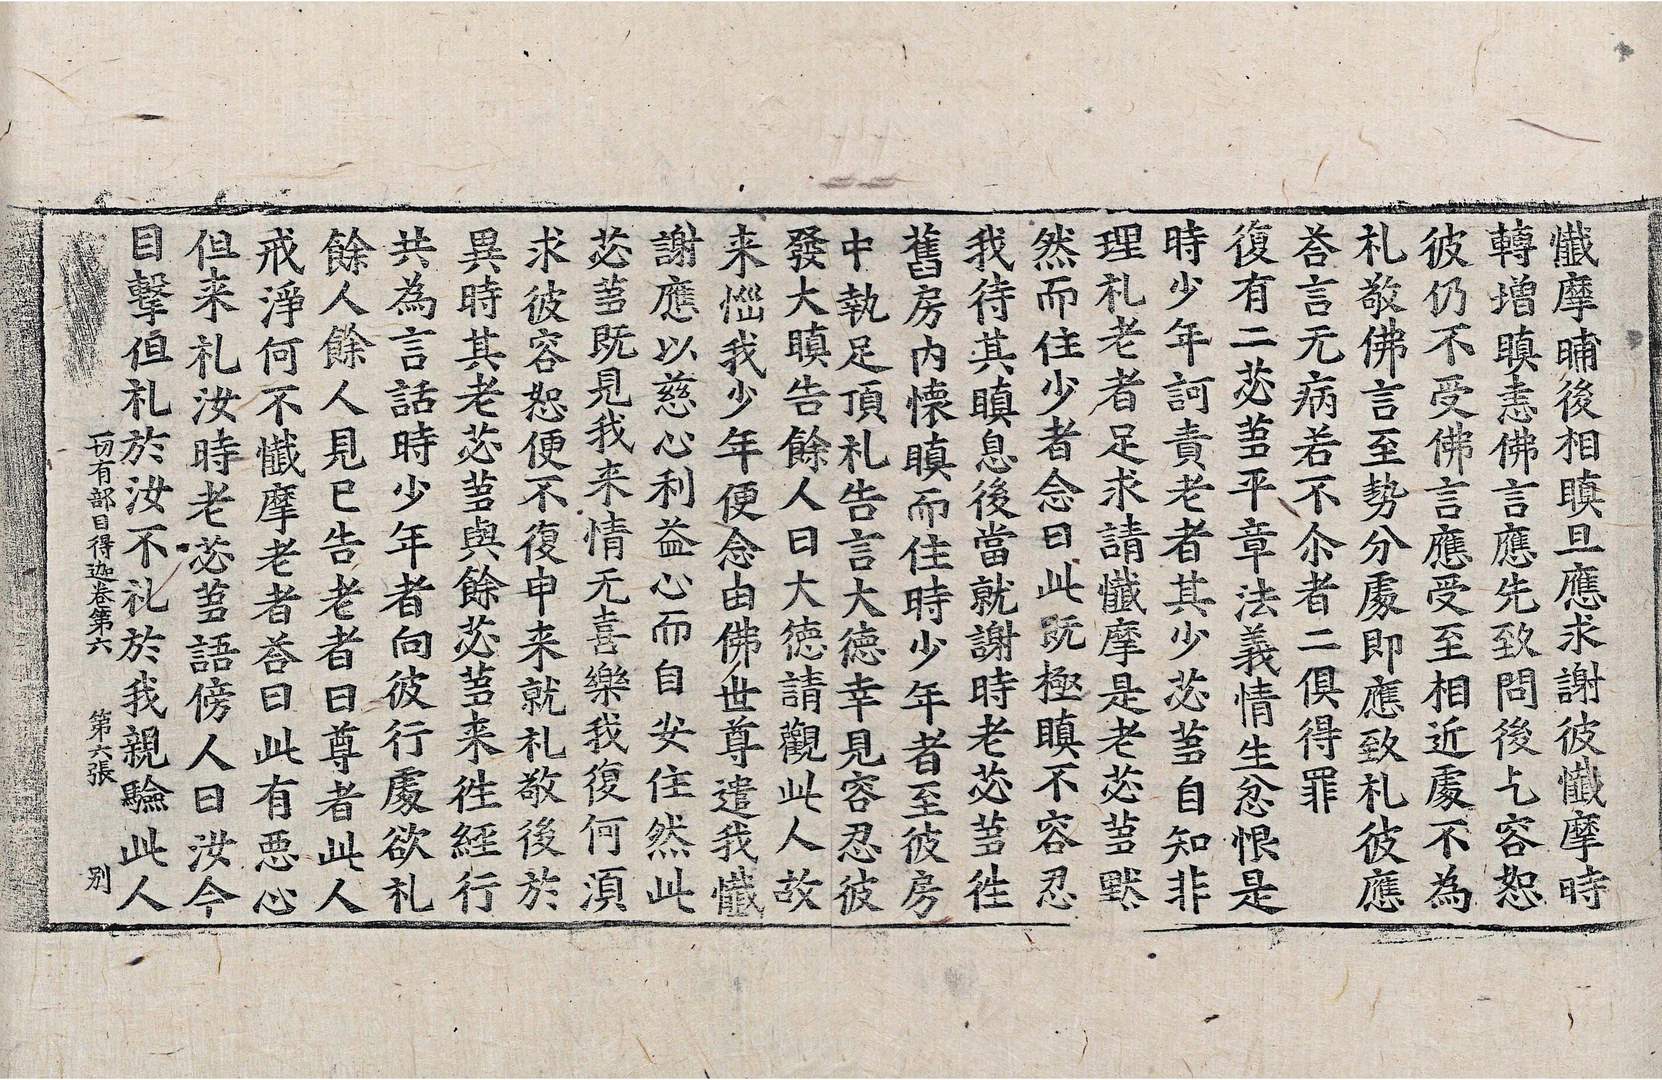 懺摩晡後相瞋旦應求謝彼懺摩時
轉增瞋恚佛言應先致問後乞容恕
彼仍不受佛言應受至相近處不為
礼敬佛言至勢分處即應致礼彼應
荅言无病若不尒者二俱得罪
復有二苾芻平章法義情生忿恨是
時少年訶責老者其少苾芻自知非
理礼老者足求請懺摩是老苾芻默
然而住少者念曰此既極瞋不容忍
我待其瞋息後當就謝時老苾芻徃
舊房內懷瞋而住時少年者至彼房
中執足頂礼告言大德幸見容忍彼
發大瞋告餘人曰大德請觀此人故
来惱我少年便念由佛世尊遣我懺
謝應以慈心利益心而自安住然此
苾芻既見我来情无喜樂我復何湏
求彼容恕便不復申来就礼敬後於
異時其老苾芻與餘苾芻来徃經行
共為言話時少年者向彼行處欲礼
餘人餘人見已告老者曰尊者此人
戒淨何不懺摩老者荅曰此有恶心
但来礼汝時老苾芻語傍人曰汝今
目擊但礼於汝不礼於我親驗此人
一切有部目得迦卷第六　第六張　别